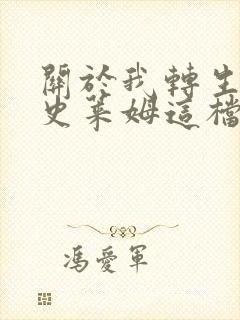 關於我轉生
史萊姆這檔
馮愛軍